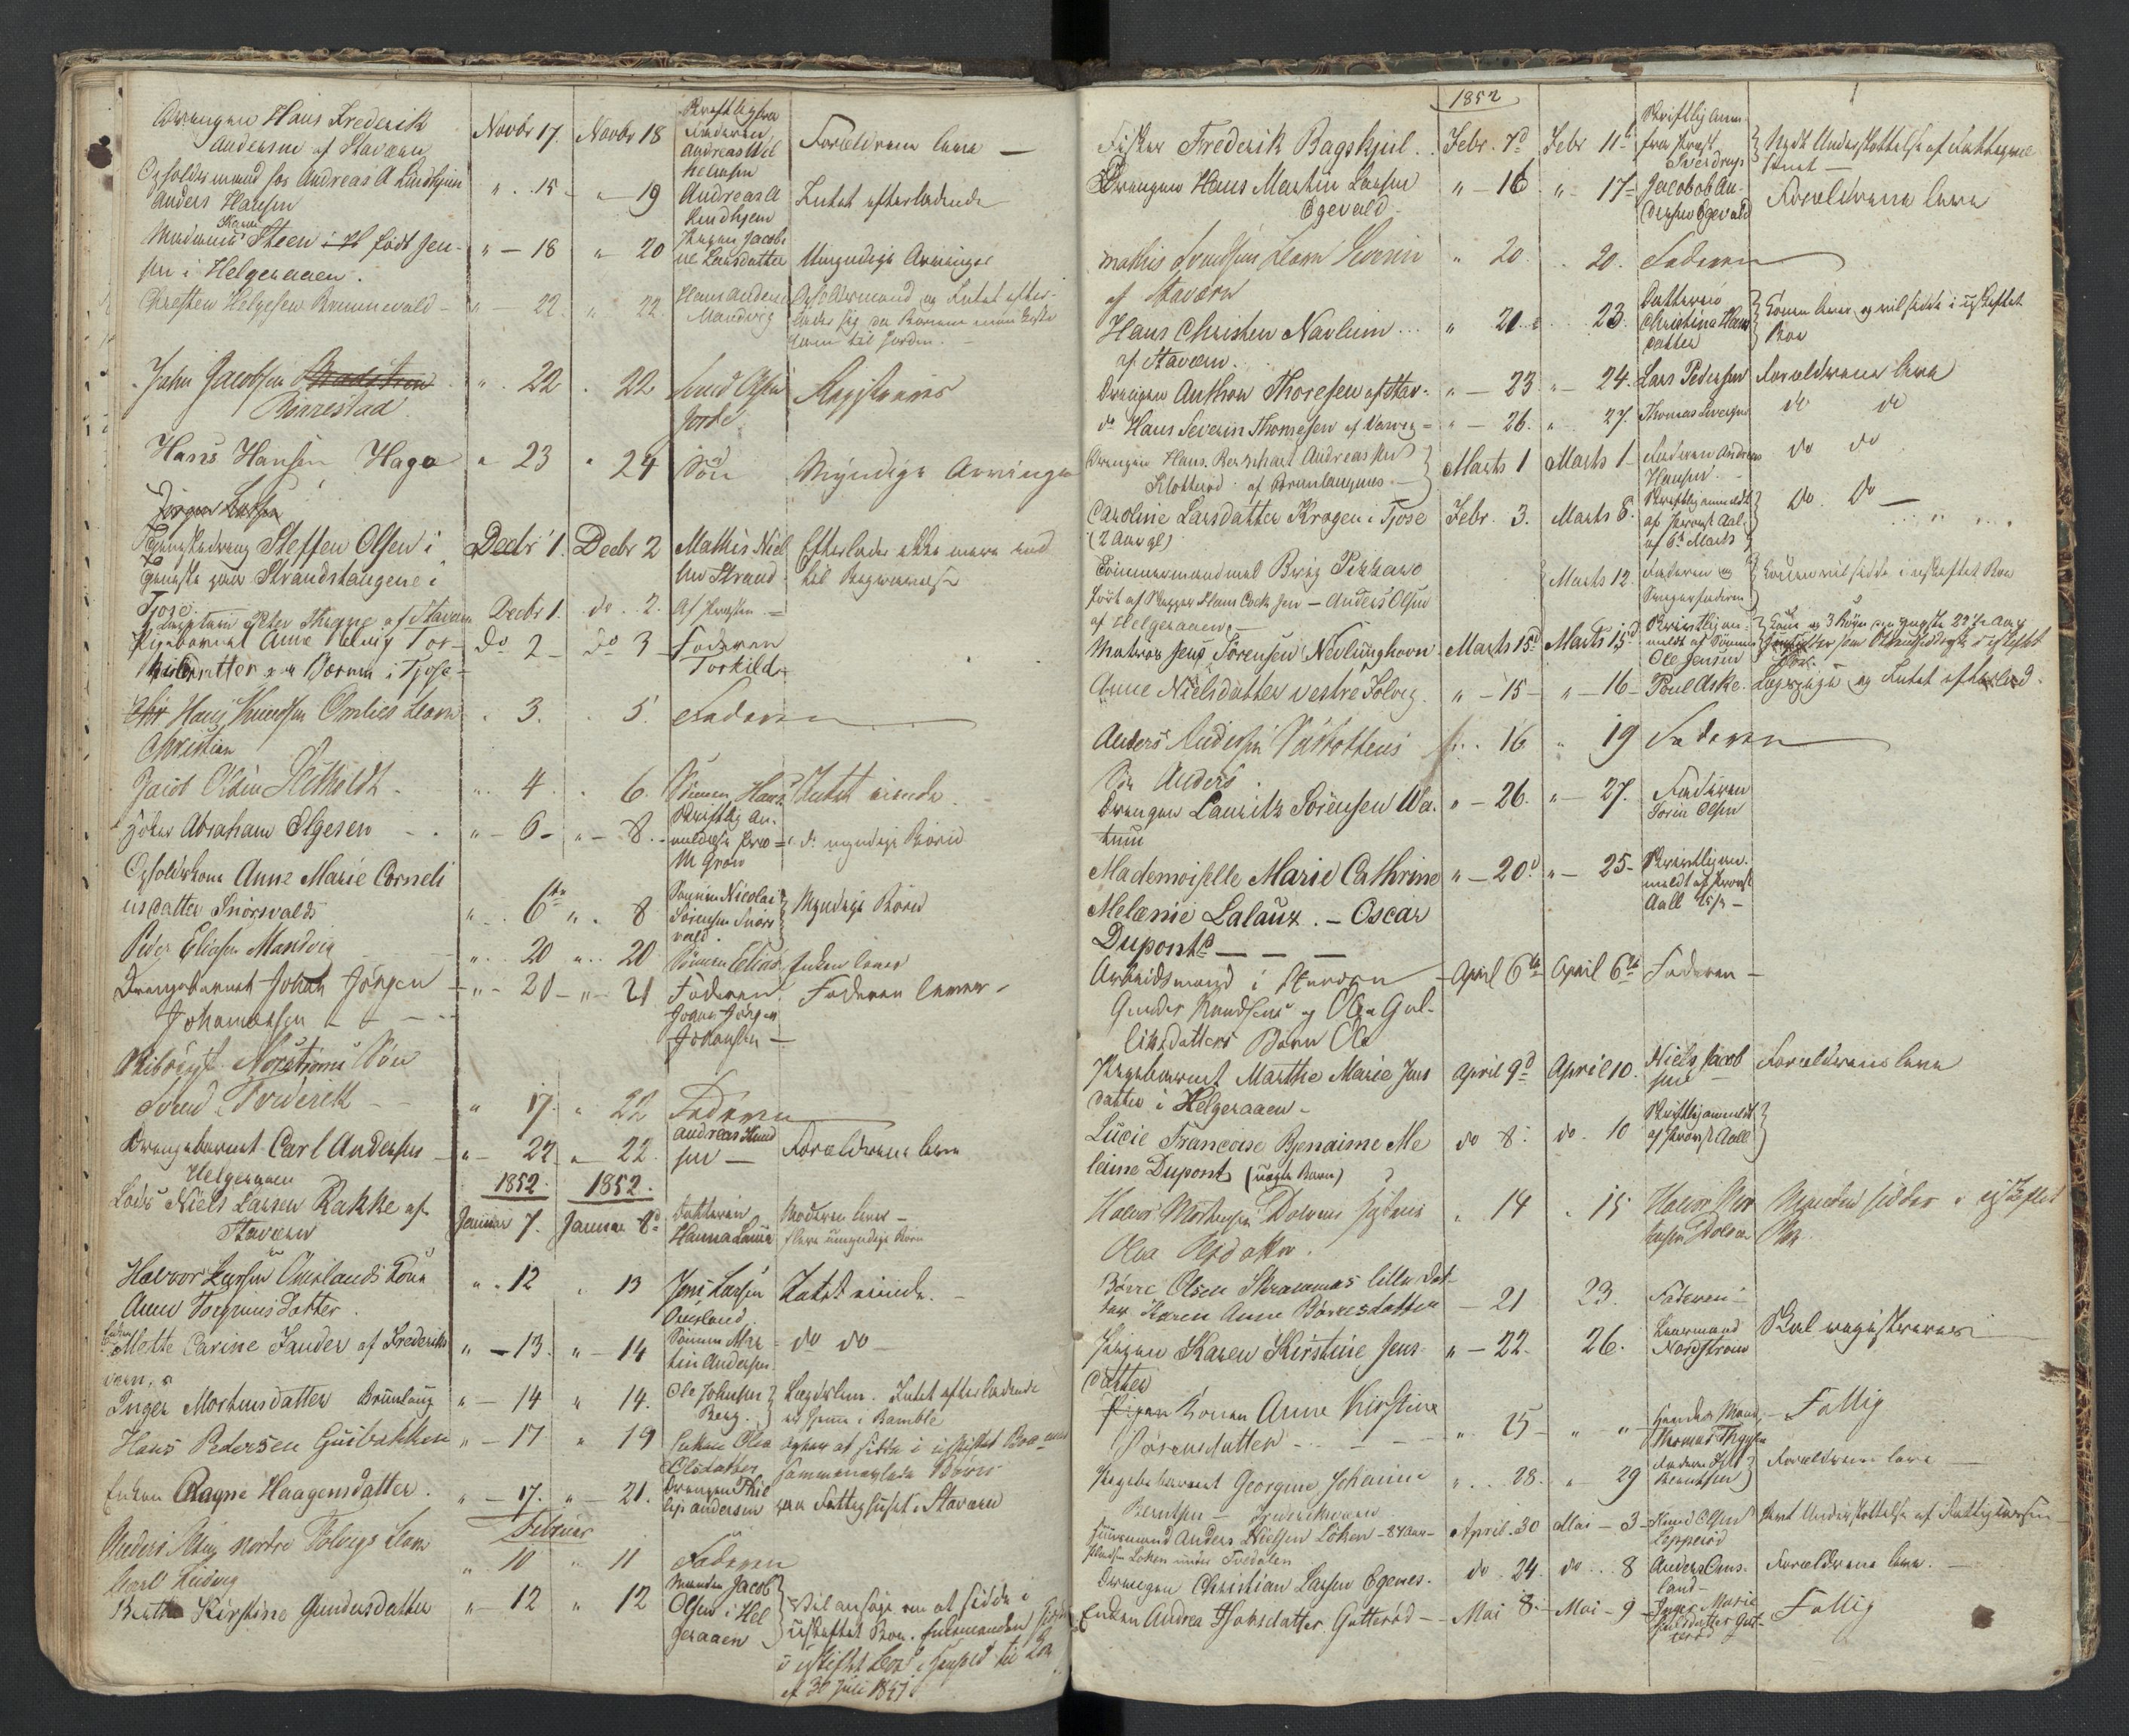 Drengen Hans Frederik
Andersen af Stavern
Novbr 17. Novbr 18
Skriftlig fra
Faderen
Andreas Wil
helmsen
Forældrene leve —
Opholdsmand hos Andreas A Lindhjem
Anders Hansen
" . 15 - " — 19
Andreas A
Lindhjem
Intet efterladende
Madame Steen født Jen-
sen i Helgeraaen.
" — 18 " 20
Pigen Jacobi
ne Larsdatter
Umyndige Arvinger
Christen Helgesen Brunnevald -
" — 22. " 22.
Hans Anders
Mandvig
Opholdsmand og Intet efter-
lader sig
ham til Jorden. —
John Jacobsen
Rinnestad
" . 22 . 22
Knud Olsen
Jorde
Registreres
Hans Hansen Haga
" 23 " 24
Søn
Myndige Arvinger
Jørgen Larsen
Tjenestedreng Steffen Olsen i
Tjeneste paa Strandstangene i
Tjose.
Decbr 1. Decbr 2
Mathis Niel
sen Strand
Efterlader ikke mere end
til Begravelse
Captain Peter Thegne af Stavern
Decbr 1. do . 2.
Af Præsten —
Pigebarnet Anne Tor-
kildsdatter i Tjose —
Do 2 - Do 3
Faderen
Torkild
Hans Knudsen Omlies Barn
Christian
" 3. . 5.
Faderen
Jacob Olsen
" . 4. " . 6.
Sønnen Hans
Intet eiende.
Abraham Elgesen - .
" — 6 - " — 8.
Skriftlig An-
meldelse
M Grøn
d: myndige Børn
Opholdskone Anne Marie Corneli
usdatter Snørsvald
" . . 6te " . 8
Sønnen Nicolai
Sørensen Snørs
vald.
Myndige Børn
Peder Eliasen Mandvig
" . 20 " . . 20
Sønnen Elias
Enken lever
Drengebarnet Johan Jørgen
Johannesen — — —
" — 20 — " — 21
Faderen
Johan Jørgen
Johansen —
Faderen lever -
Nørstrøms Søn
Svend Frederik
" 17. " 22
Faderen
Drengebarnet Carl Andersen
Helgeraaen
" — 22 " 22.
Andreas Knud
sen —
Forældrene leve
1852. 1852.
Lods Niels Larsen Rakke af
Stavern
Januar 7. Januar 8d
Datteren
Hanna Lovise
Moderen lever —
flere umyndige Børn
Halvor Larsen Omlands Kone
Anne Torgrimsdatter.
" . 12 " 13
Jens Larsen
Omland
Intet eiende. —
Enken
Mette Carine Sander af Frederiks
værn.
" — 13. " — 14
Sønnen Mar
tin Andersen
do do —
Inger Mortensdatter Brunlaug
" — 14 " 14.
Ole Johnsen
Berg.
Lægdslem. Intet efterladende
i Bamble
Hans Pedersen Guibakken
" — 17 " 19
Enken Olea
Olsdatter
agter at sidde i uskiftet Boe
sammenavlede Børn
Enken Ragne Haagensdatter.
" — 17. " — 21.
Drengen Thil
Andersen
paa Fattighuset i Stavern
Februar
Anders nordre Tolvigs Barn
Carl Ludvig
" 10 " 11
Faderen
Berthe Kirstine Gundersdatter
" — 12 " 12
Manden Jacob
Olsen i Hel
geraaen
Vil ansøge om at sidde i
uskiftet Boe.
i uskiftet Boe i Henhold til Lov
af 30 Juli 1851.
1852
Fisker Frederik Bagskjul . .
Febr. 7d Febr 11te
Skriftlig Anm
fra Provst
Sverdrup
Nydt Understøttelse af Fattigvæ
senet —
Drengen Hans Martin Larsen
Ogevald
" — 16 " — 17 -
Jacob An-
dersen Ogevald
Forældrene leve
Mathis Svendsens Barn Severin
af Stavern
" 20. . . 20.
Faderen
Hans Christen Navlein . . .
af Stavern. . .
" 21 . . . . 23.
Datteren
Christina Hans
datter
Konen lever og vil sidde i uskiftet
Boe
Drengen Anthon Thoresen af Stav-
" — 23 " — 24.
Lars Pedersen
Forældrene leve
do Hans Severin Thomesen af Narvig =
" — 26. " . 27.
Thomas Iversen
do do
Drengen Hans Bernhart Andreasen
Klotterød af Brunlaugnes. —
Marts 1 Marts 1 -
Faderen Andreas
Hansen . —
do do
Caroline Larsdatter Krogen i Tjose
(2 Aar gl)
Febr. 3. Marts 8.
Skriftlig anmeldt
af Provst Aal.
af 6te Marts
do Do —
Tømmermand med Brig Pekkaro
ført af Skipper Hans Cock Jen — Anders Olsen
af Helgeraaen. —
Marts 12.
Faderen og
Svigerfaderen
Konen vil sidde i uskiftet Boe
Matros Jens Sørensen Nevlunghavn
Marts 15d Marts 15d
Skriftlig an-
meldt af Sønnen
Ole Jensen
Kone og 3 Børn yngste 22½ Aar
i uskiftet
Boe
Anne Nielsdatter vestre Tolvig.
" — 15 — " — 16 -
Poul Aske.
Lægdspige og Intet efterlad.
Anders Andersen
Søn Anders
" . . 16 " 19
Faderen
Drengen Lauritz Sørensen Wa-
tum
" — 26. " — 27.
Faderen
Søren Olsen
Mademoiselle Marie Cathrine
Melanie Lalauz. — Oscar
Duponts — — —
" — 20d " — 25 -
Skriftlig an-
meldt af Provst
Aall
Arbeidsmand i
Gunder Knudsens og Olea Gul-
liksdatters Barn Ole
April 6te April 6te
Faderen —
Pigebarnet Marthe Marie Jens
datter i Helgeraaen -
April 9d April 10.
Niels Jacob
sen —
Forældrene leve
Lucie Francoise Bjenaime Me
leine Dupont (uægte Barn)
do 8. do. 10
Skriftlig anmeldt
af Provst Aall
Halvor Mortensen Dolvens Hustrue
Olea Olsdatter.
" 14 " 15
Halvor Mor
tensen Dolven
Manden sidder i uskiftet
Boe
Børre Olsen lille Dat-
ter Karen Anne Børresdatter
— 21 23.
Faderen —
Pigen Karen Kirstine Jens
datter
" — 22. 26.
Lensmand
Nordstrøm
Skal registreres
Konen Anne Kirstine
Sørensdatter - - — — -
" . 25 — " "
Hendes Mand
Thomas Thygesen
— Fattig
Pigebarnet Georgine Johanne
Berntsen — Frederiksværn
" . . . 28. " 29
Faderen
Berntsen
Forældrene leve —
Huusmand Anders Nielsen Løken — 84 Aar —
Pladsen Løken under Tvedalen
April. 30 Mai — 3 -
Knud Olsen
Lepperød
Nydt Understøttelse af Fattigkassen
Drengen Christian Larsen Egenes.
do . 24. do . . . 8
Anders Om-
land —
Forældrene leve. —
Enken Andrea Isaksdatter Gatterød —
Mai 8. - Mai — 9
Inger Marie
Gat-
terød
— Fattig